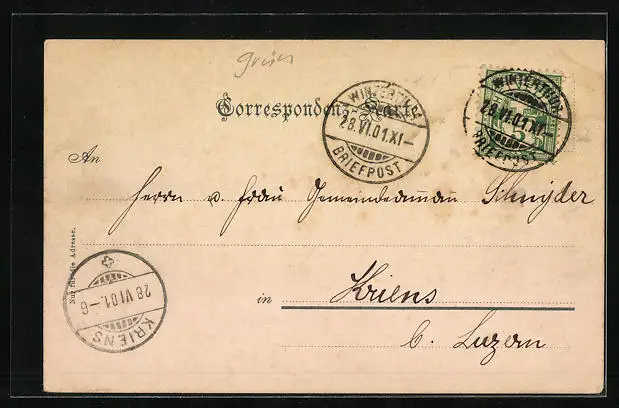 grün
Correspondenz-Karte
WINTERTHUR
28.VI.01.XI–
BRIEFPOST
WINTERTHUR
28.VI.01.XI–
BRIEFPOST
5
An
Herrn v. Frau Gemeindeamman Schnyder
Nur für die Adresse.
28.VI.01.–6
KRIENS
in Kriens
b. Luzern